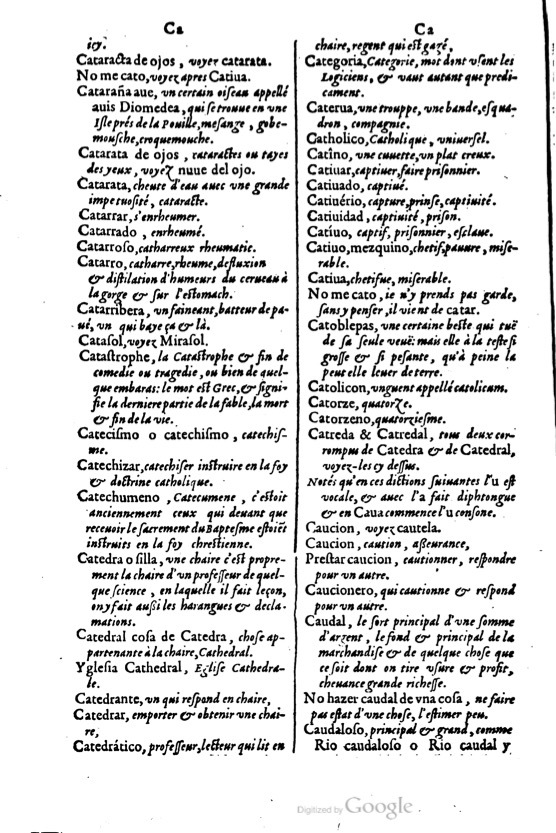 Ca
icy.
Cataracta de ojos, voyer catarata.
No me cato, voyez apres Catiua.
Cataraña aue, vn certain oiseau appellé
auis Diomedea, qui se trouue en vne
Isle prés de la Pouille, mesange, gobe-
mousche, croquemouche.
Catarata de ojos, cataractes ou tayes
des yeux, voyez nuue del ojo.
Catarata, cheute d'eau auec vne grande
impetuosité, cataracte.
Catarrar, s'enrheumer.
Catarrado, enrheumé.
Catarroso, catharreux rheumatic.
Catarro, catharre, rheume, defluxion
& distilation d'humeurs du cerueau à
la gorge & sur l'estomach.
Catarribera, vn faineant, batteur de pa-
ué, vn qui baye çà & là.
Catasol, voyez Mirasol.
Catastrophe, la Catastrophe & fin de
comedie ou tragedie, ou bien de quel-
que embaras: le mot est Grec, & signi-
fie la derniere partie de la fable, la mort
& fin de la vie.
Catecismo o catechismo, catechis-
me.
Catechizar, catechiser instruire en la foy
& doctrine catholique.
Catechumeno, Catecumene, c'estoit
anciennement ceux qui deuant que
receuoir le sacrement du Baptesme estoiẽt
instruits en la foy chrestienne.
Catedra o silla, vne chaire c'est propre-
ment la chaire d'vn professeur de quel-
que science, en laquelle il fait leçon,
on y fait aussi les harangues & decla-
mations.
Catedral cosa de Catedra, chose ap-
partenante à la chaire, Cathedral.
Yglesia Cathedral, Eglise Cathedra-
le.
Catedrante, vn qui respond en chaire,
Catedrar, emporter & obtenir vne chai-
re,
Catedrático, professeur, lecteur qui lit en
Ca
chaire, regent qui est gagé,
Categoria, Categorie, mot dont vsont les
Logiciens, & vaut autant que predi-
cament.
Caterua, vne trouppe, vne bande, esqua-
dron, compagnie.
Catholico, Catholique, vniuersel.
Catîno, vne cuuette, vn plat creux.
Catiuar, captiuer, faire prisonnier.
Catiuado, captiué.
Catiuério, capture, prinse, captiuité.
Catiuidad, captiuité, prison.
Catíuo, captif, prisonnier, esclaue.
Catiuo, mezquino, chetif, pauure, mise-
rable.
Catiua, chetifue, miserable.
No me cato, ie n'y prends pas garde,
sans y penser, il vient de catar.
Catoblepas, vne certaine beste qui tuë
de sa seule veuë: mais elle à la teste si
grosse & si pesante, qu'à peine la
peut elle leuer de terre.
Catolicon, vnguent appellé catolicum.
Catorze, quatorze.
Catorzeno, quatorziesme.
Catreda & Catredal, tous deux cor-
rompus de Catedra & de Catedral,
voyez-les cy dessus.
Notés qu'en ces dictions suiuantes l'u est
vocale, & auec l'a fait diphtongue
& en Caua commence l'u consone.
Caucion, voyez cautela.
Caucion, caution, asseurance,
Prestar caucion, cautionner, respondre
pour vn autre.
Caucionero, qui cautionne & respond
pour vn autre.
Caudal, le sort principal d'vne somme
d'argent, le fond & principal de la
marchandise & de quelque chose que
ce soit dont on tire vsure & profit,
cheuance grande richesse.
No hazer caudal de vna cosa, ne faire
pas estat d'vne chose, l'estimer peu.
Caudaloso, principal & grand, comme
Rio caudaloso o Rio caudal y
Digitized by Google